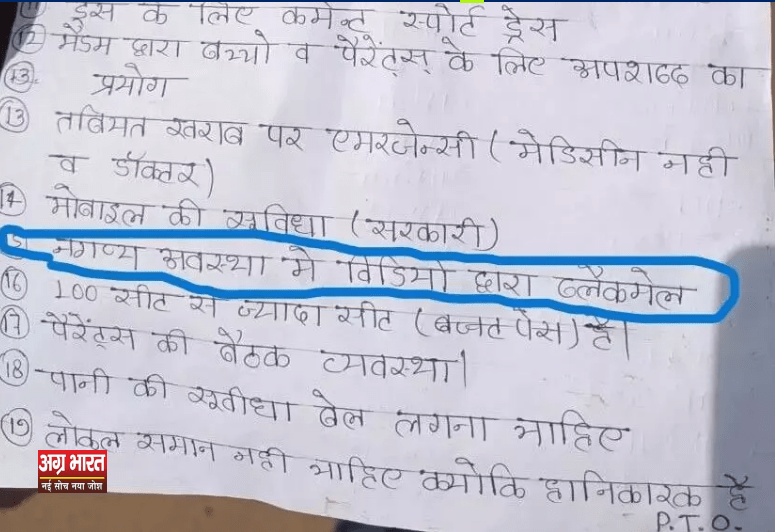 (11) ड्रेस के लिए कमेन्ट स्पोर्ट ड्रेस
(12) मैडम द्वारा बच्चो व पैरेंट्स् के लिए अपशब्द का
(13)- प्रयोग
(13) तबियत खराब पर एमरजेन्सी (मेडिसीन नही
व डॉक्टर)
14 मोबाइल की सुविधा (सरकारी)
नगण्य अवस्था मे विडियो द्वारा ब्लैकमेल
(16) 100 सीट से ज्यादा सीट (बजट पैस) है।
(17) पैरेंट्स की बैठक व्यवस्था।
(18) पानी की सुवीधा बेल लगना चाहिए
(19) लोकल समान नही चाहिए क्योकि हानिकारक है
P.T.O.
अग्र भारत
नई सोच नया जोश